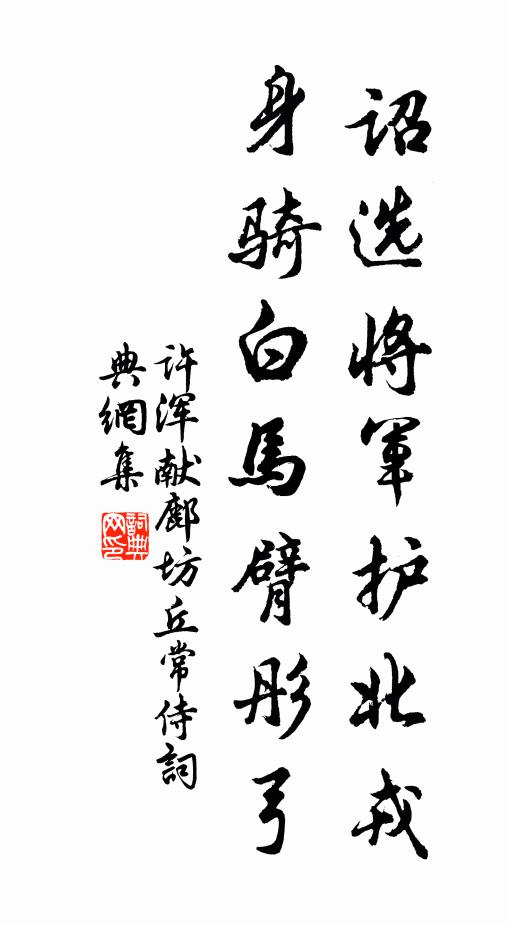 诏选将军护北戎
身骑白马臂彤弓
许浑献鄜坊丘常侍詞
典網集
詞典
网印